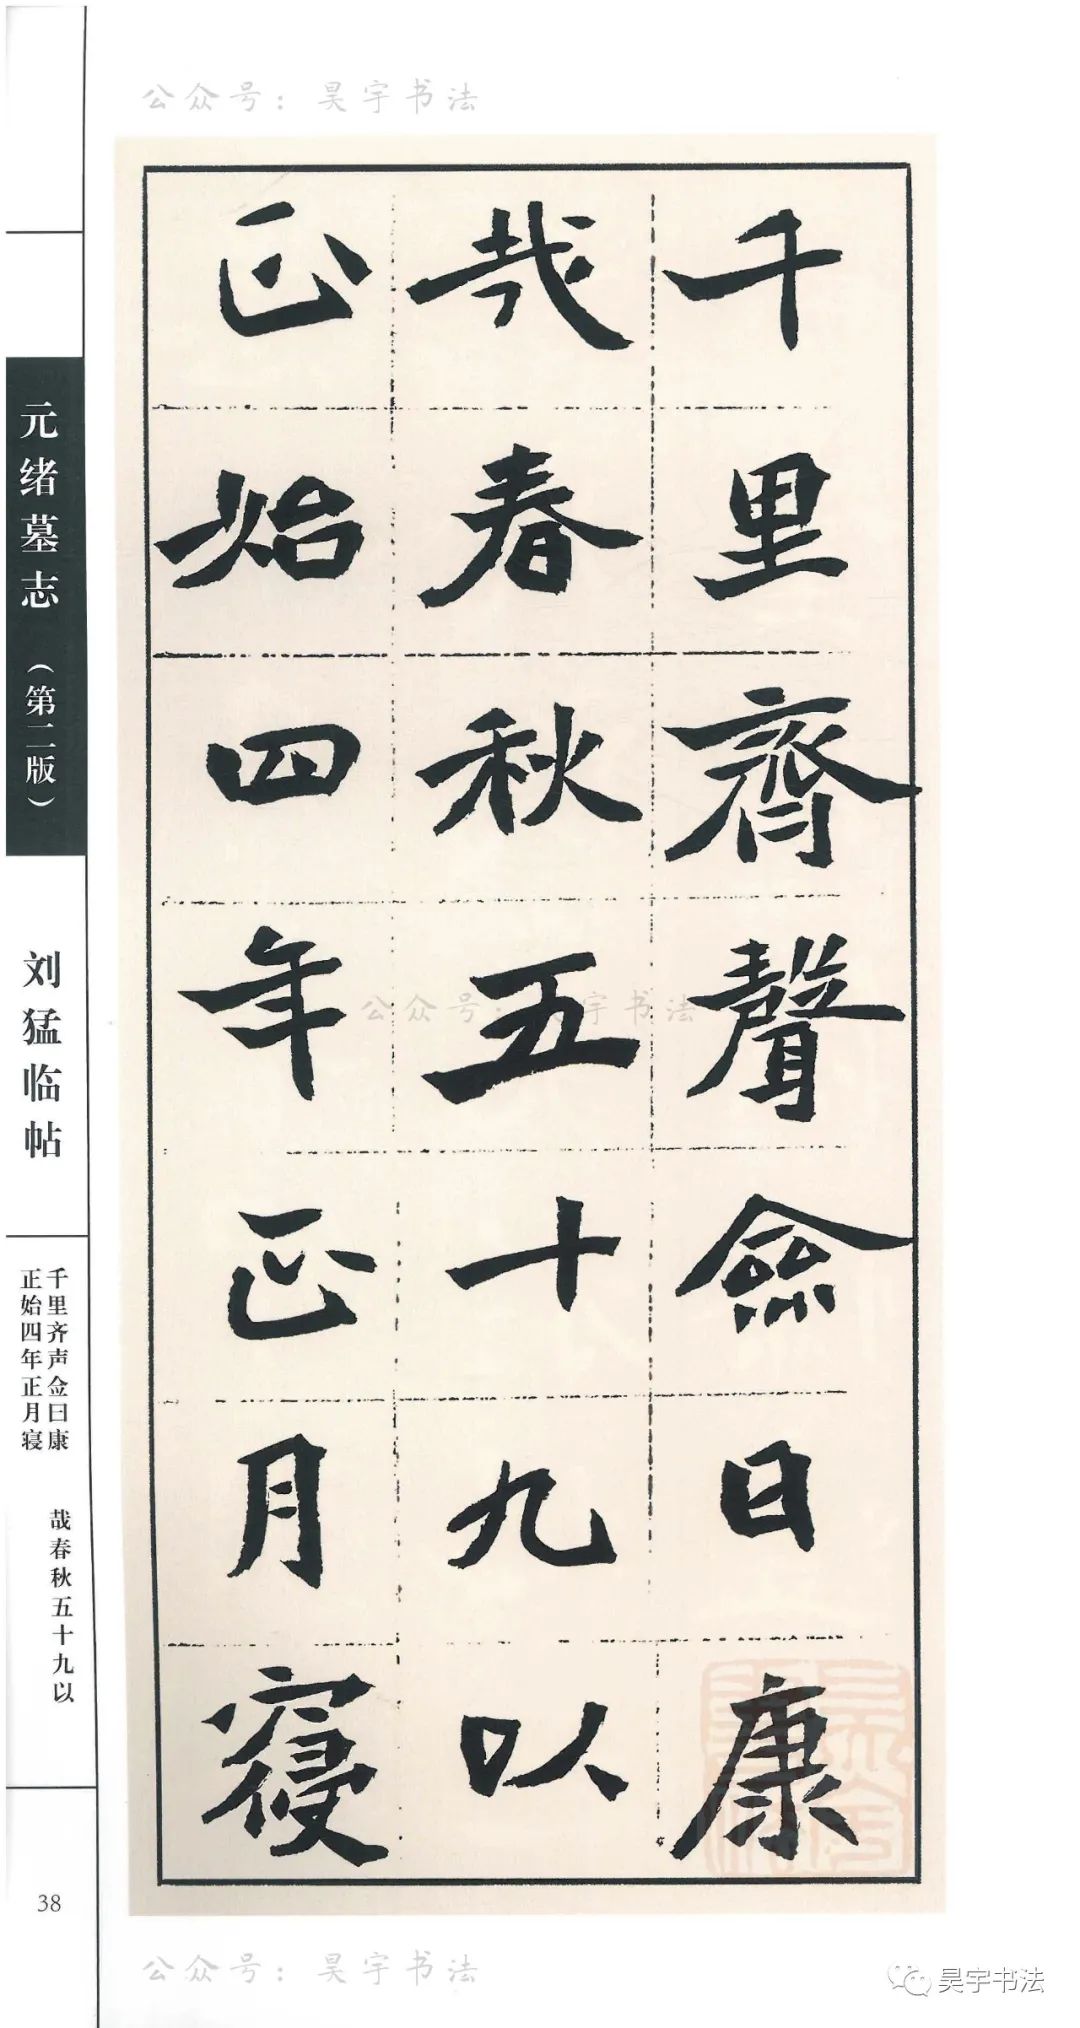 公众号：昊宇书法
千里齊聲僉曰康
哉春秋五十九以
正始四年正月寑
元绪墓志（第二版）
刘猛临帖
千里齐声佥曰康
哉春秋五十九以
正始四年正月寝
38
公众号：昊宇书法
公众号：昊宇书法
昊宇书法